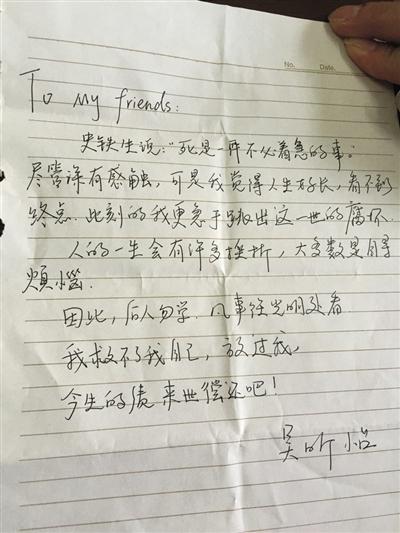 No.
Date.
To My friends:
史铁生说:“死是一件不必着急的事。
尽管深有感触,可是我觉得人生好长,看不到
终点.此刻的我更急于跳出这一世的腐坏.
人的一生会有许多挫折,大多数是自寻
烦恼.
因此,后人勿学.凡事往光明处看.
我救不了我自己,放过我,
今生的债来世偿还吧!
吴昕怡